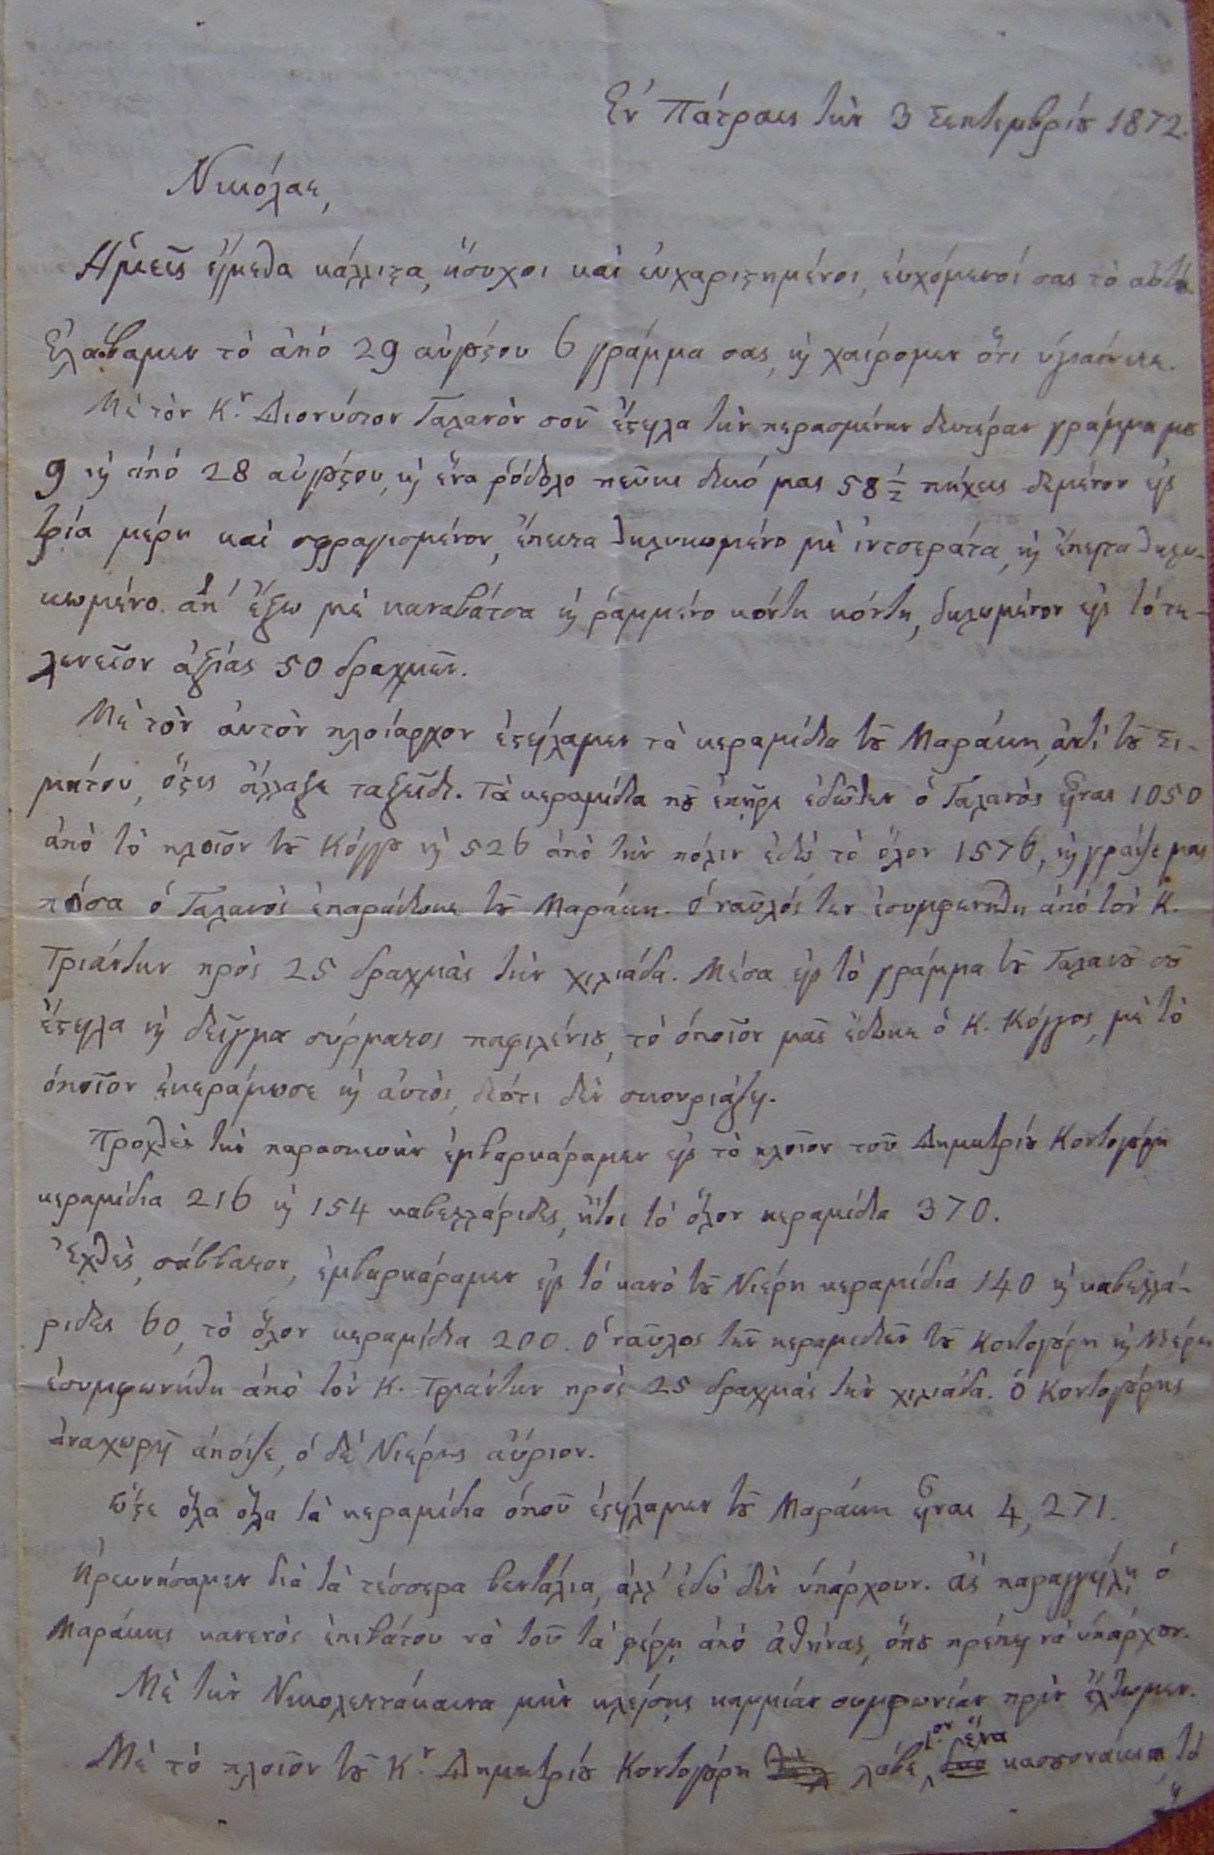 Ἐν Πάτραις τὴν 3 Σεπτεμβρίȣ 1872.
Νικόλαε,
Ἡμεῖς εἴμεθα κάλλιστα, ἥσυχοι καὶ εὐχαριστημένοι, εὐχόμενοί σας τὸ αὐτό.
Ἐλάβαμεν τὸ ἀπὸ 29 αὐγȣ́στου 6 γράμμα σας, ϗ χαίρομεν ὅτι ὑγιαίνετε.
Μὲ τὸν Κ.ʳ Διονύσιον Γαλανὸν σοῦ ἔστειλα τὴν περασμένην δευτέραν γράμμα μȣ
9 ϗ ἀπό 28 αὐγȣ́στου, ϗ ἕνα ῥόδολο πεῦκι δικό μας 58 ½ πήχεις δεμένον εἰς
τρία μέρη καὶ σφραγισμένον, ἔπειτα θηλυκωμένο μὲ ἰντσεράτα, ϗ ἔπειτα θηλυ-
κωμένο ἀπ' ἔξω μὲ καναβάτσα ϗ ῥαμμένο κόντη κόντη, δηλωμένον εἰς τὸ τε-
λωνεῖον ἀξίας 50 δραχμῶν.
Μὲ τὸν αὐτὸν πλοίαρχον ἐστείλαμεν τὰ κεραμίδια τȣ͂ Μαράκη, ἀντὶ τȣ͂ Στ-
μάτου, ὅστις ἄλλαξε ταξεῖδι. Τὰ κεραμίδια πȣ͂ ἐπῆρε ἐδῶθεν ὁ Γαλανὸς εἶναι 1050
ἀπὸ τὸ πλοῖον τȣ͂ Κόγγȣ ϗ 526 ἀπὸ τὴν πόλιν ἐδώ, τὸ ὅλον 1576, ϗ γράψε μας
πόσα ὁ Γαλανὸς ἐπαράδωκε τȣ͂ Μαράκη. Ὁ ναῦλός των ἐσυμφωνήθη ἀπὸ τὸν Κ.
Τριάντην πρὸς 25 δραχμὰς τὴν χιλιάδα. Μέσα εἰς τὸ γράμμα τȣ͂ Γαλανȣ͂ σȣ͂
ἔστειλα ϗ δεῖγμα σύρματος παφιλένιȣ, τὸ ὁποῖον μᾶς ἔδωκε ὁ Κ. Κόγγος, μὲ τὸ
ὁποῖον ἐκεράμωσε ϗ αὐτός, διότι δὲν σκουριάζει.
Προχθὲς τὴν παρασκευὴν ἐμβαρκάραμεν εἰς τὸ πλοῖον τοῦ Δημητρίȣ Κοντογȣ́ρη
κεραμίδια 216 ϗ 154 καβελλάριδες, ἤτοι τὸ ὅλον κεραμίδια 370.
Ἐχθές, σάββατον, ἐμβαρκάραμεν εἰς τὸ κατὸ τȣ͂ Νιέρη κεραμίδια 140 ϗ καβελλά-
ριδες 60, τὸ ὅλον κεραμίδια 200. Ὁ ναῦλος τῶν κεραμιδιῶν τȣ͂ Κοντογȣ́ρη ϗ Νιέρη
ἐσυμφωνήθη ἀπὸ τὸν Κ. Τριάντην πρὸς 25 δραχμὰς τὴν χιλιάδα. Ὁ Κοντογȣ́ρης
ἀναχωρεῖ ἀπόψε, ὁ δὲ Νιέρης αὔριον.
Ὥστε ὅλα ὅλα τὰ κεραμίδια ὁποῦ ἐστείλαμεν τȣ͂ Μαράκη εἶναι 4,271.
Ἠρευνήσαμεν διὰ τὰ τέσσερα βεντάλια, ἀλλ' ἐδώ δὲν ὑπάρχουν. ἂς παραγγείλῃ ὁ
Μαράκης κανενὸς ἐπιβάτου νὰ τοῦ τὰ φέρῃ ἀπὸ Ἀθήνας, ὅπȣ πρέπει νὰ ὑπάρχȣν.
Μὲ τὴν Νικολεττάκαινα μὴν κλείσῃς καμμίαν συμφωνίαν πρὶν ἔλθωμεν.
Μὲ τὸ πλοῖον τȣ͂ Κ.ʳ Δημητρίȣ Κοντογȣ́ρη λάβε, 1.ον ἕνα κασσονάκι, τὸ